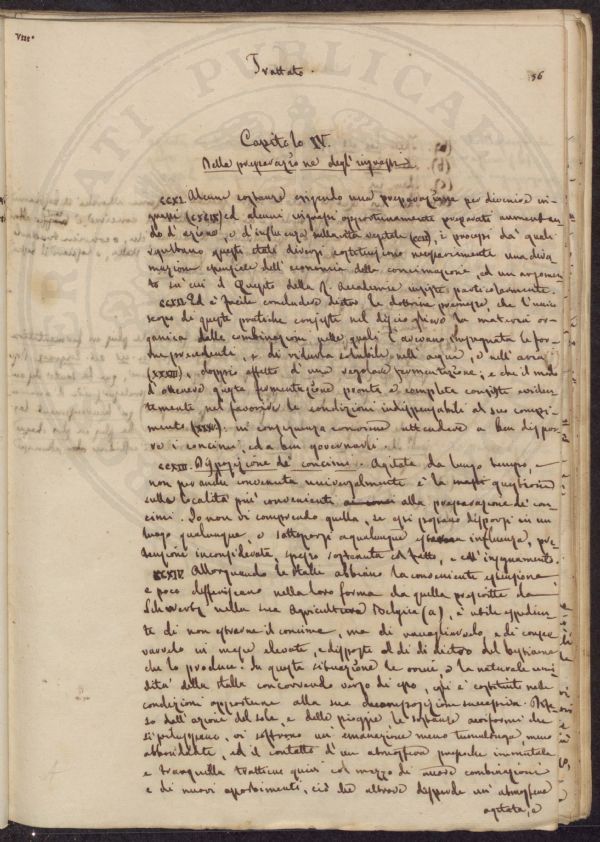 VIII.
Trattato.
56
Capitolo IV.
Della preparazione degl'ingrassi.
CCXI. Alcune sostanze esigendo una preparazione per divenire in-
grassi (CXCIX) ed alcuni ingrassi opportunamente preparati aumentan-
do d'azione, o d'influenza sulla vita vegetale (CCII), i processi da' quali
risultano questi stati diversi costituiscono necessariamente una dira-
mazione speciale dell'economia della concimazione, ed un argomen-
to su cui il Quesito della R. Accademia insiste particolarmente.
CCXII. Ed è facile concludere dietro le dottrine premesse, che l'unico
scopo di queste pratiche consiste nel disciogliere la materia or-
ganica dalle combinazioni, nelle quali l'avevano impegnata le for-
me precedenti, e di ridurla solubile nell'acqua, o nell'aria
(XXXIII), doppio effetto d'una regolare fermentazione; e che il modo
d'ottenere questa fermentazione pronta e completa consiste eviden-
temente nel favorire le condizioni indispensabili al suo compi-
mento (XXXIV): in conseguenza conviene attendere a ben dispor-
re i concimi, ed a ben governarli.
CCXIII. Disposizione de' concimi. Agitata da lungo tempo, e
non per anche convenuta universalmente è la questione
sulla località più conveniente alla preparazione de' con-
cimi. Io non vi comprendo quella, se essi possano disporsi in un
luogo qualunque, o sottoporsi a qualunque influenza, pre-
tenzione inconsiderata, spesso sostenuta col fatto, e coll'insegnamento.
CCXIV. Allorquando le stalle abbiano la conveniente estensione
e poco differiscano nella loro forma da quella prescritta da
Schwertz nella sua Agricoltura Belgica (a), è utile espedien-
te di non estrarne il concime, ma di
in masse elevate, e disposte al di di dietro del bestiame
che lo produce. In questa situazione le orine, e la naturale umi-
dità della stalla concorrendo verso di esso, essi è costituito nelle
condizioni opportune alla sua decomposizione successiva. Dife-
so dall'azione del sole, e delle piogge, le sostanze aeriformi che
si sviluppano, vi soffrono un'emanazione meno tumultuosa, meno
abbondante, ed il contatto d'un'atmosfera pressochè immutata
e tranquilla trattiene quivi col mezzo di nuove combinazioni
e di nuovi assorbimenti, ciò che altrove disperde un'atmosfera
agitata, e